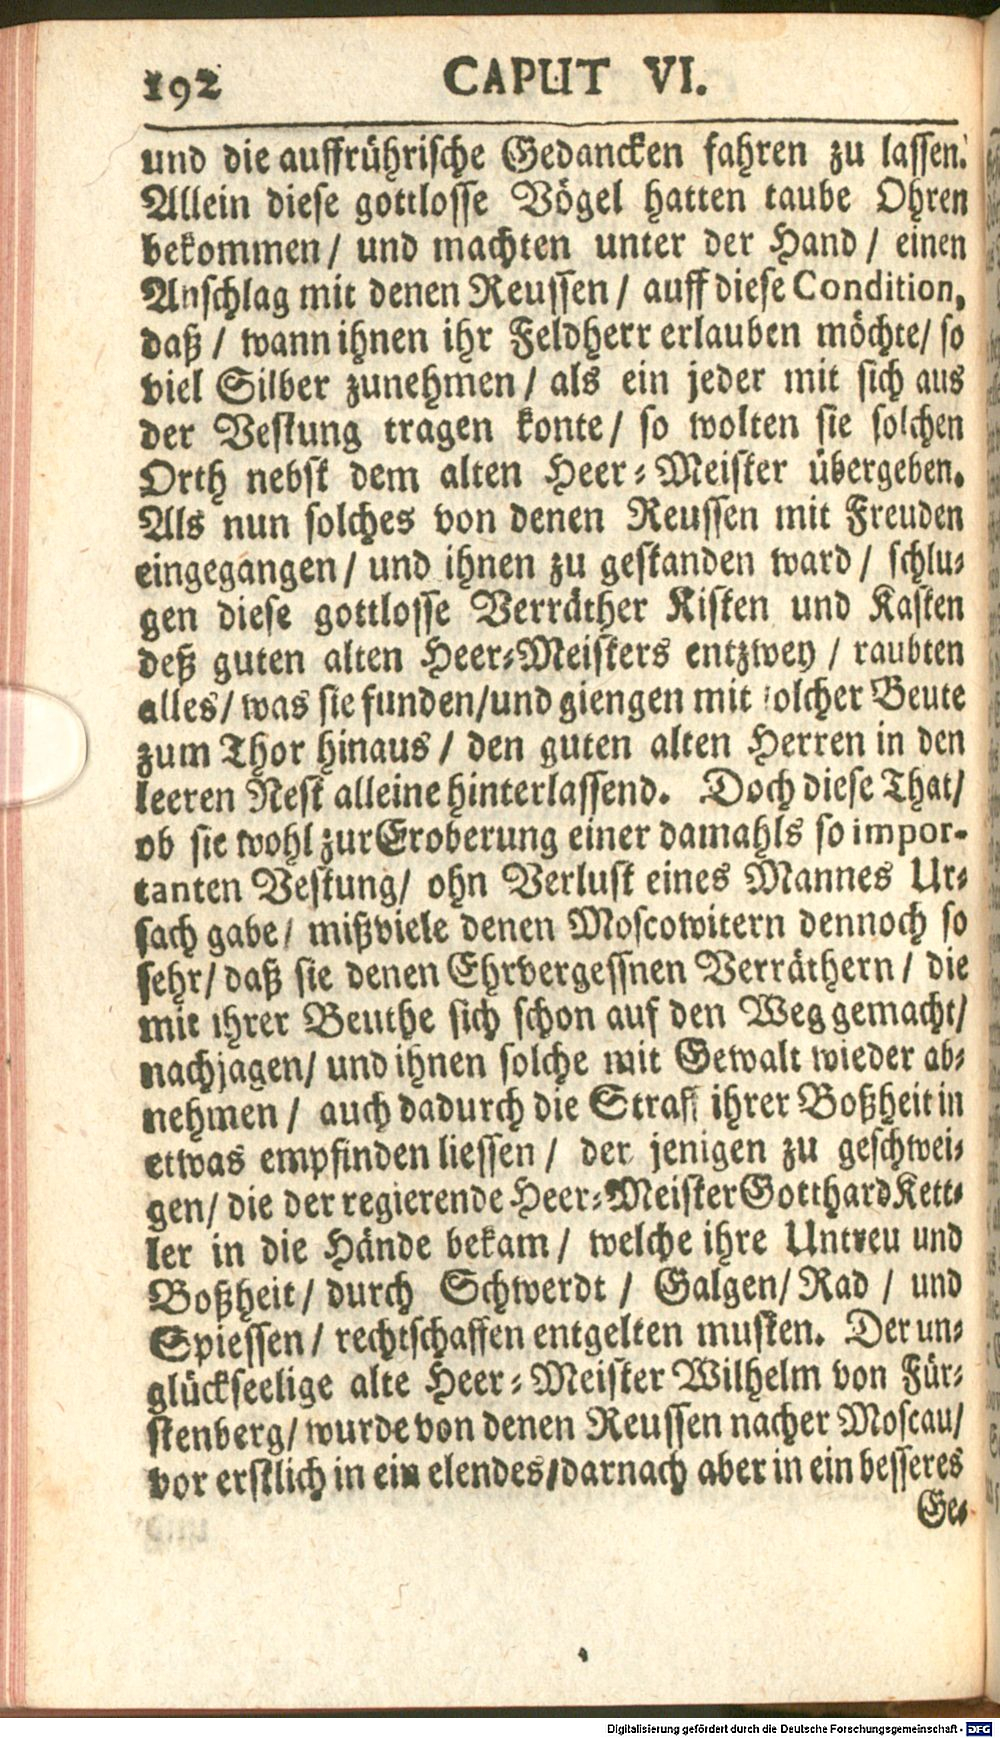 192 CAPUT VI.
und die auffrührische Gedancken fahren zu lassen.
Allein diese gottlosse Vögel hatten taube Ohren
bekommen / und machten unter der Hand / einen
Anschlag mit denen Reussen / auff diese Condition,
daß / wann ihnen ihr Feldherr erlauben möchte / so
viel Silber zunehmen / als ein jeder mit sich aus
der Vestung tragen konte / so wolten sie solchen
Orth nebst dem alten Heer-Meister übergeben.
Als nun solches von denen Reussen mit Freuden
eingegangen / und ihnen zu gestanden ward / schlu-
gen diese gottlosse Verräther Kisten und Kasten
deß guten alten Heer-Meisters entzwey / raubten
alles / was sie funden / und giengen mit solcher Beute
zum Thor hinaus / den guten alten Herren in den
leeren Nest alleine hinterlassend. Doch diese That /
ob sie wohl zur Eroberung einer damahls so impor-
tanten Vestung / ohn Verlust eines Mannes Ur-
sach gabe / mißviele denen Moscowitern dennoch so
sehr / daß sie denen Ehrvergessnen Verräthern / die
mit ihrer Beuthe sich schon auf den Weg gemacht /
nachjagen / und ihnen solche mit Gewalt wieder ab-
nehmen / auch dadurch die Straff ihrer Boßheit in
etwas empfinden liessen / der jenigen zu geschwei-
gen / die der regierende Heer-Meister Gotthard Kett-
ler in die Hände bekam / welche ihre Untreu und
Boßheit / durch Schwerdt / Galgen / Rad / und
Spiessen / rechtschaffen entgelten musten. Der un-
glückseelige alte Heer-Meister Wilhelm von Für-
stenberg / wurde von denen Reussen nacher Moscau /
vor erstlich in ein elendes / darnach aber in ein besseres
Ge-
Digitalisierung gefördert durch die Deutsche Forschungsgemeinschaft - DFG